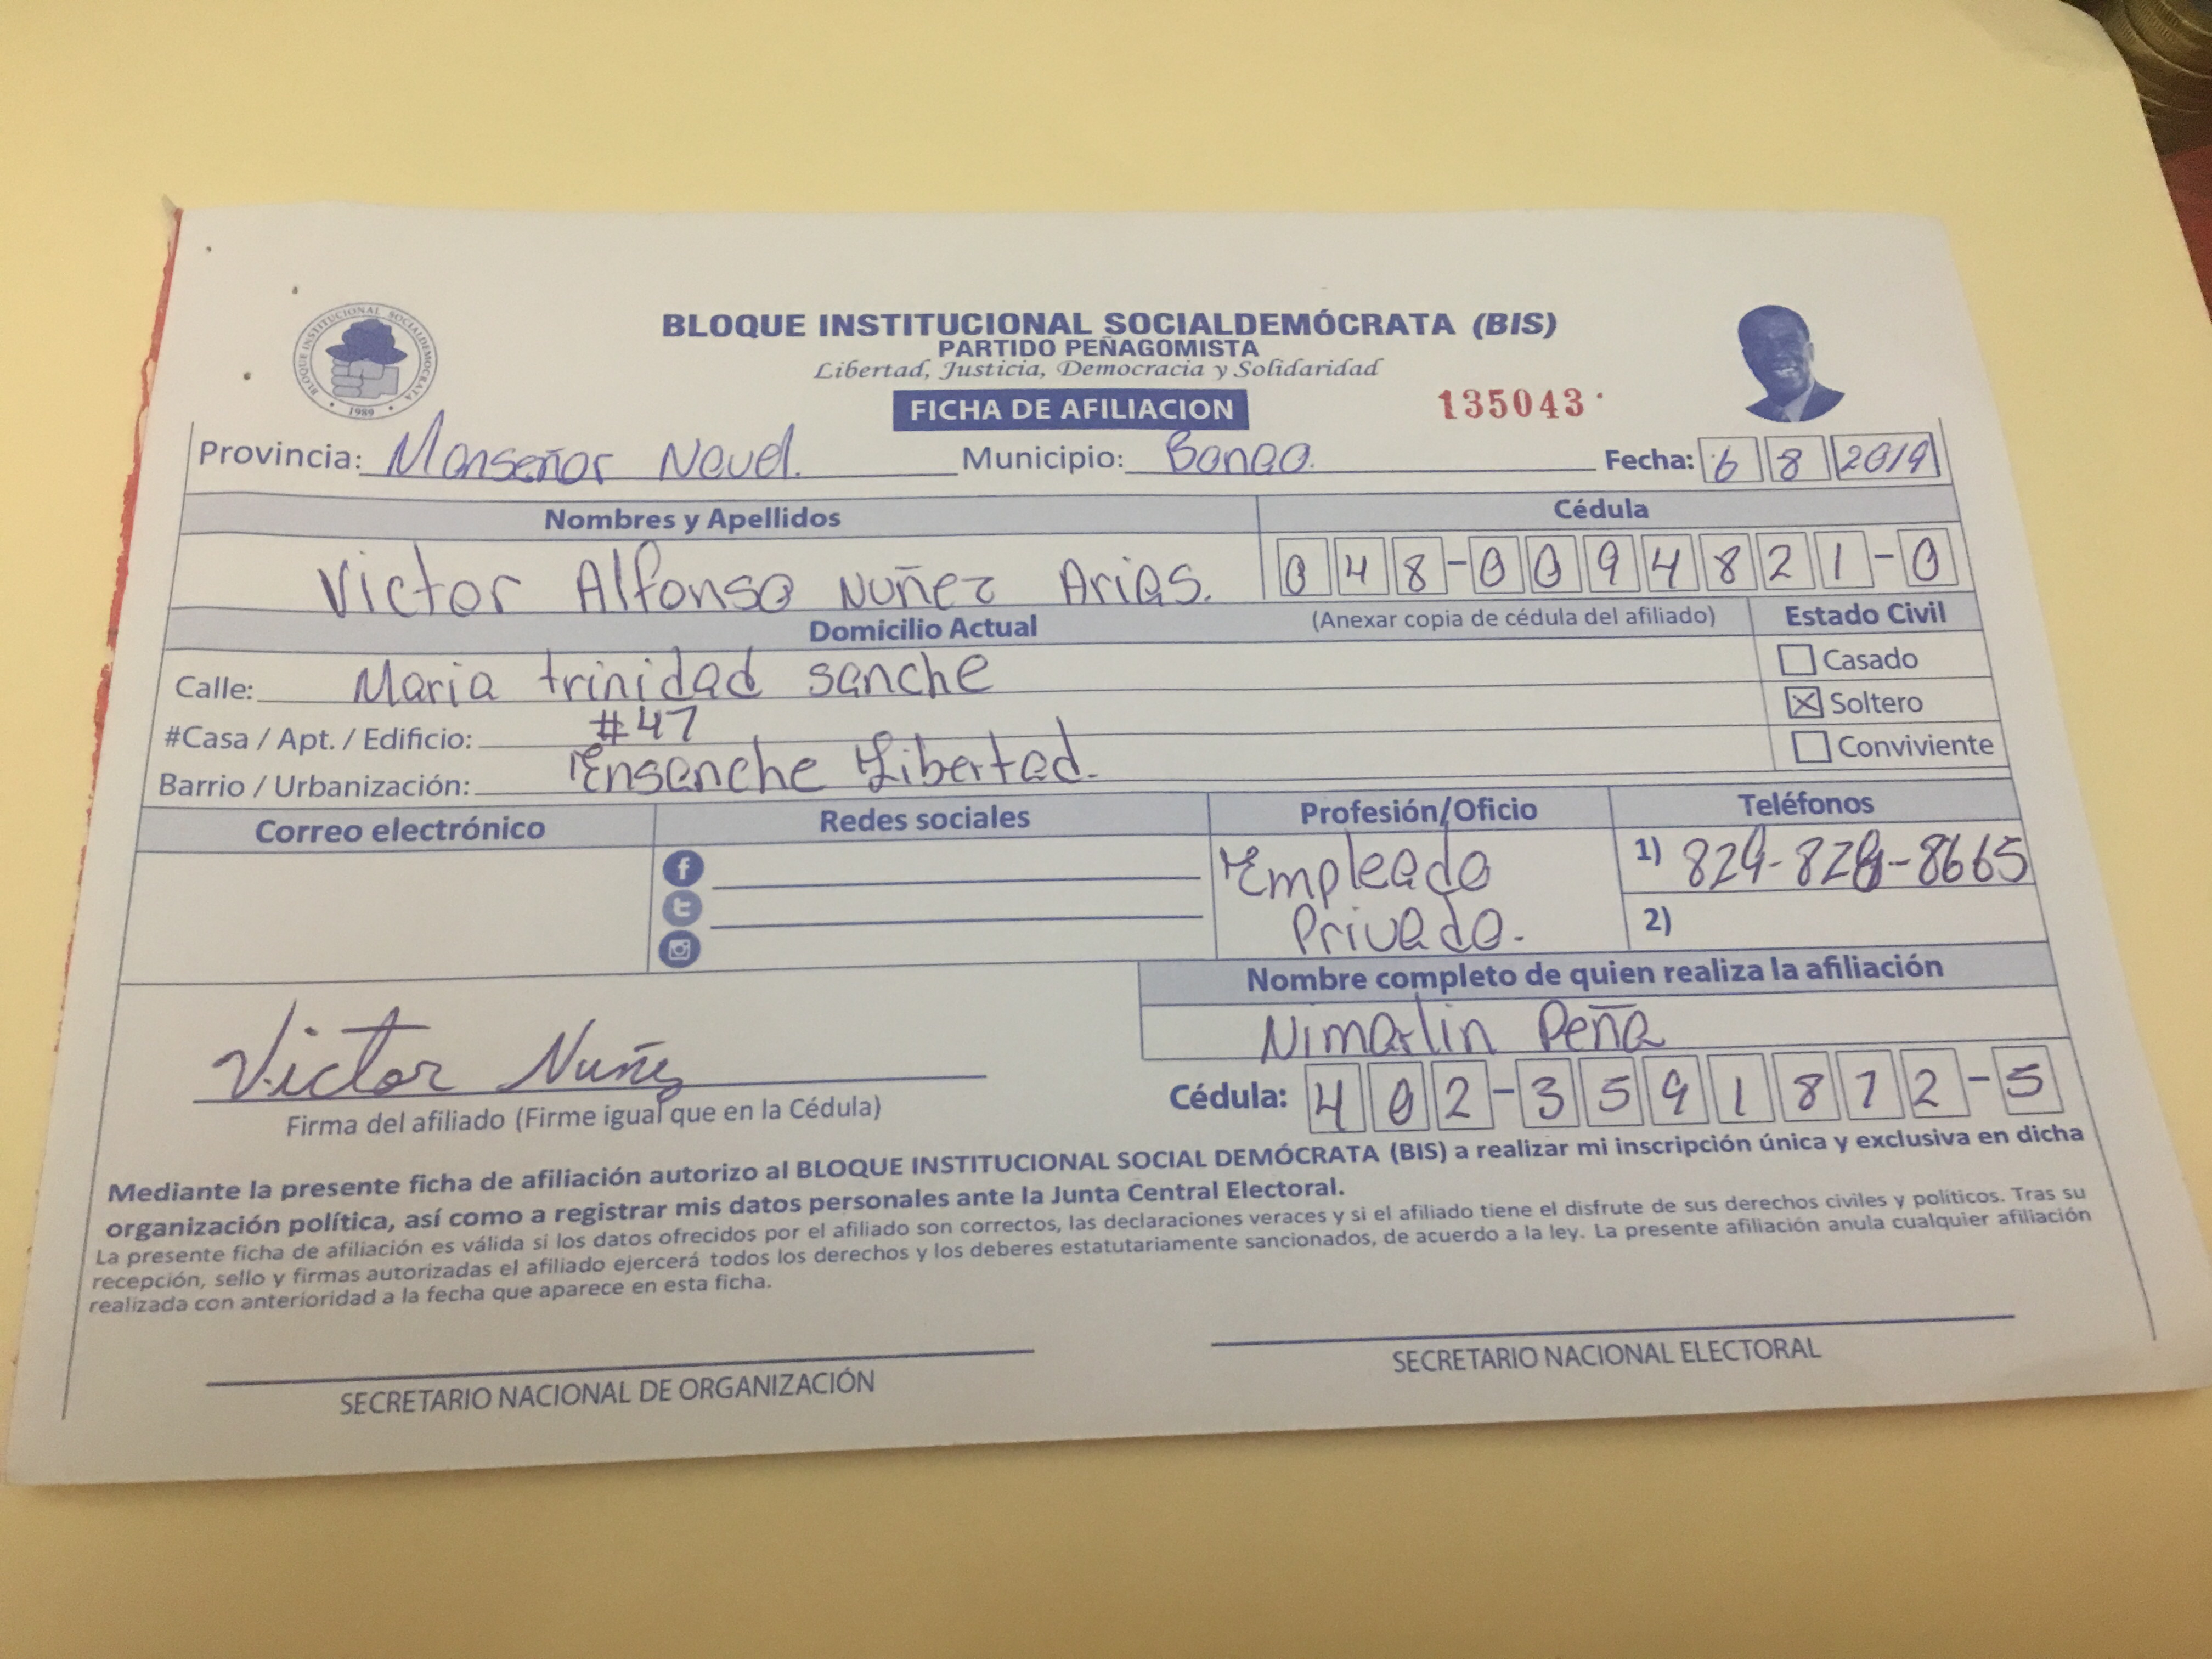 BLOQUE INSTITUCIONAL SOCIALDEMOCRATA
1989
BLOQUE INSTITUCIONAL SOCIALDEMÓCRATA (BIS)
PARTIDO PEÑAGOMISTA
Libertad, Justicia, Democracia y Solidaridad
FICHA DE AFILIACION 135043
Provincia: Monseñor Nouel. Municipio: Bonao. Fecha: 6 8 2019
Nombres y Apellidos Cédula
Victor Alfonso Nuñez Arias. 048-0094821-0
Domicilio Actual (Anexar copia de cédula del afiliado) Estado Civil
Calle: Maria trinidad sanche Casado
#Casa / Apt. / Edificio: #47 Soltero
Barrio / Urbanización: Ensanche Libertad. Conviviente
Correo electrónico Redes sociales Profesión/Oficio Teléfonos
Empleado 1) 829-828-8665
Privado. 2)
Nombre completo de quien realiza la afiliación
Nimarlin Peña
Victor Nuñez Cédula: 402-3591872-5
Firma del afiliado (Firme igual que en la Cédula)
Mediante la presente ficha de afiliación autorizo al BLOQUE INSTITUCIONAL SOCIAL DEMÓCRATA (BIS) a realizar mi inscripción única y exclusiva en dicha
organización política, así como a registrar mis datos personales ante la Junta Central Electoral.
La presente ficha de afiliación es válida si los datos ofrecidos por el afiliado son correctos, las declaraciones veraces y si el afiliado tiene el disfrute de sus derechos civiles y políticos. Tras su
recepción, sello y firmas autorizadas el afiliado ejercerá todos los derechos y los deberes estatutariamente sancionados, de acuerdo a la ley. La presente afiliación anula cualquier afiliación
realizada con anterioridad a la fecha que aparece en esta ficha.
SECRETARIO NACIONAL DE ORGANIZACIÓN SECRETARIO NACIONAL ELECTORAL